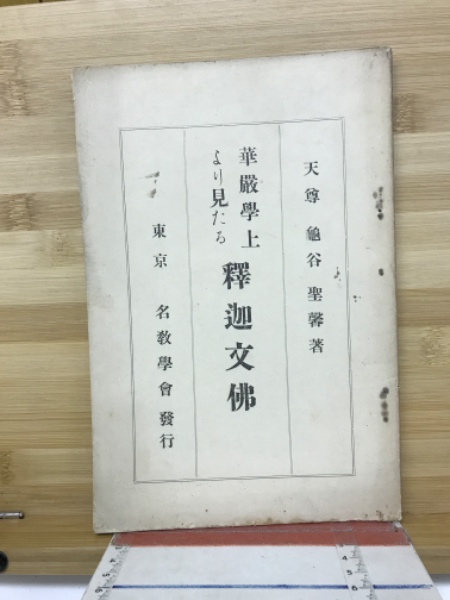 天尊 龜谷聖馨著
華嚴學上
より見たる
釋迦文佛
東京 名敎學會 發行